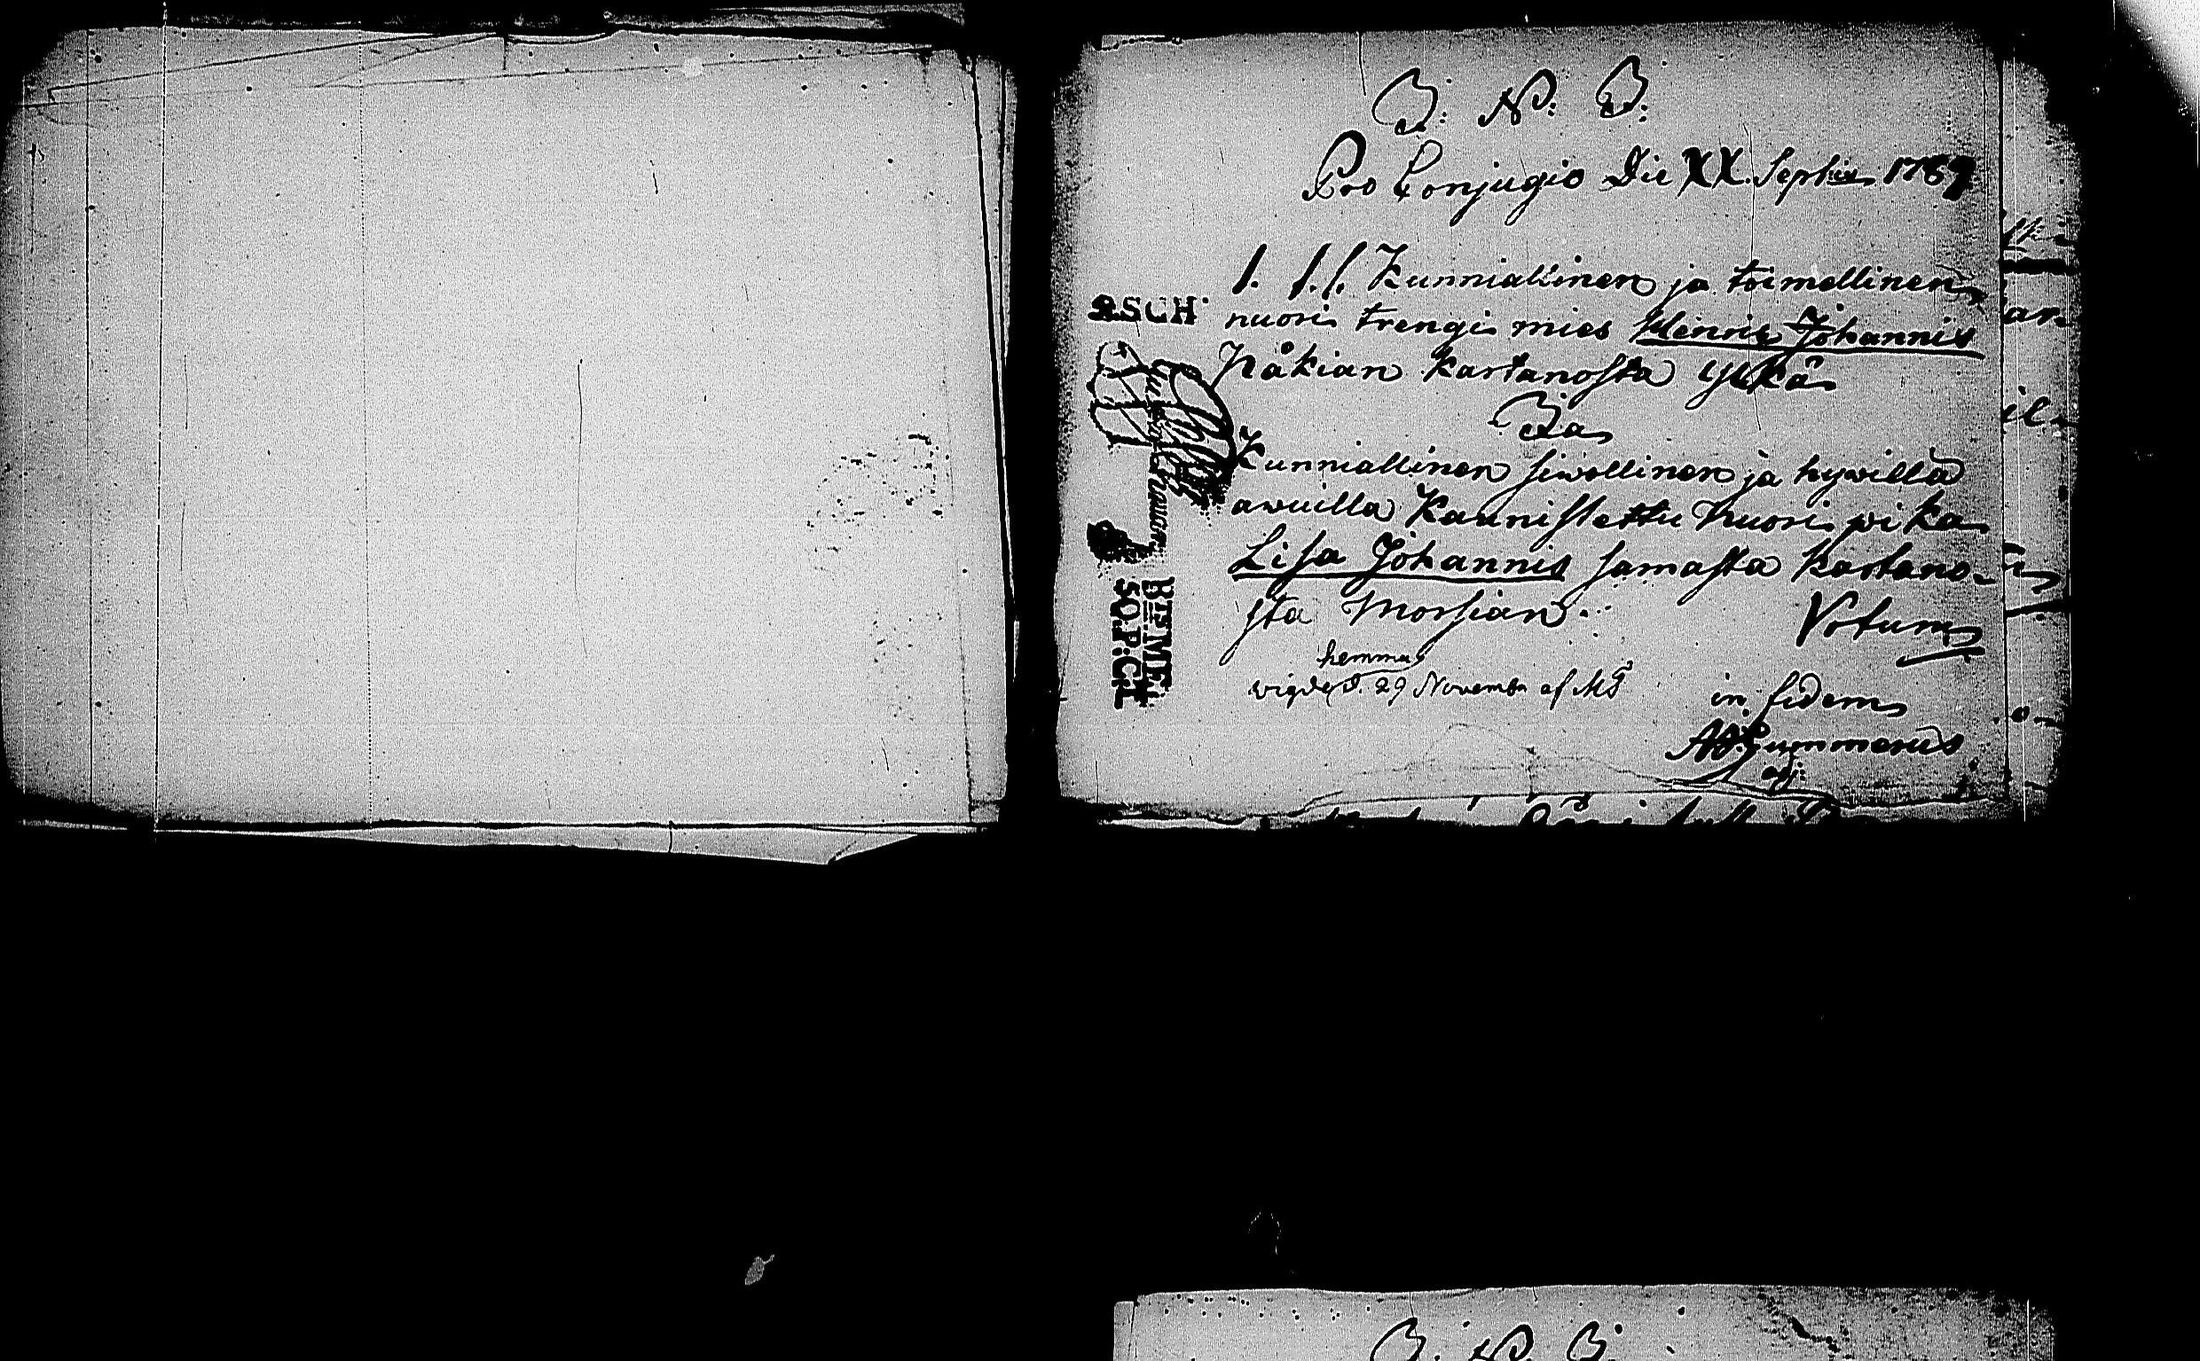 J: N: J:
Pro Conjugio Die XX. Septbr. 1789
1. s.s. Kunniallinen ja toimellinen
nuori trengi mies Henric Johannis
Nåkian Kartanosta Ykå
Ja
Kunniallinen siwollinen ja hywillå
awuilla Kaunistettu nuori pika
Lisa Johannis samasta Kartano-
sta Morsian.
Votum
hemma
vigde d. 29 Novembr af Mg
in fidem
Gummerus
adj:
SCH
BTE. ME.
SQ. P: CH
J. N. J.